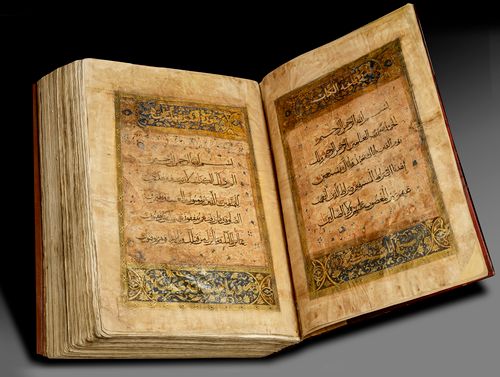 فاتحة الكتاب
بسم الله الرحمن الرحيم
الحمد لله رب العلمين الرحمن الرحيم ملك
يوم الدين اياك نعبد واياك نستعين
اهدنا الصراط المستقيم صراط الذين انعمت
عليهم غير المغضوب عليهم ولا الضالين
بسم الله الرحمن الرحيم
الم ذلك الكتب لا ريب فيه هدى
للمتقين الذين يؤمنون بالغيب ويقيمون
الصلوة ومما رزقنهم ينفقون والذين يؤمنون
بما انزل اليك وما انزل من قبلك وبالاخرة هم يوقنون